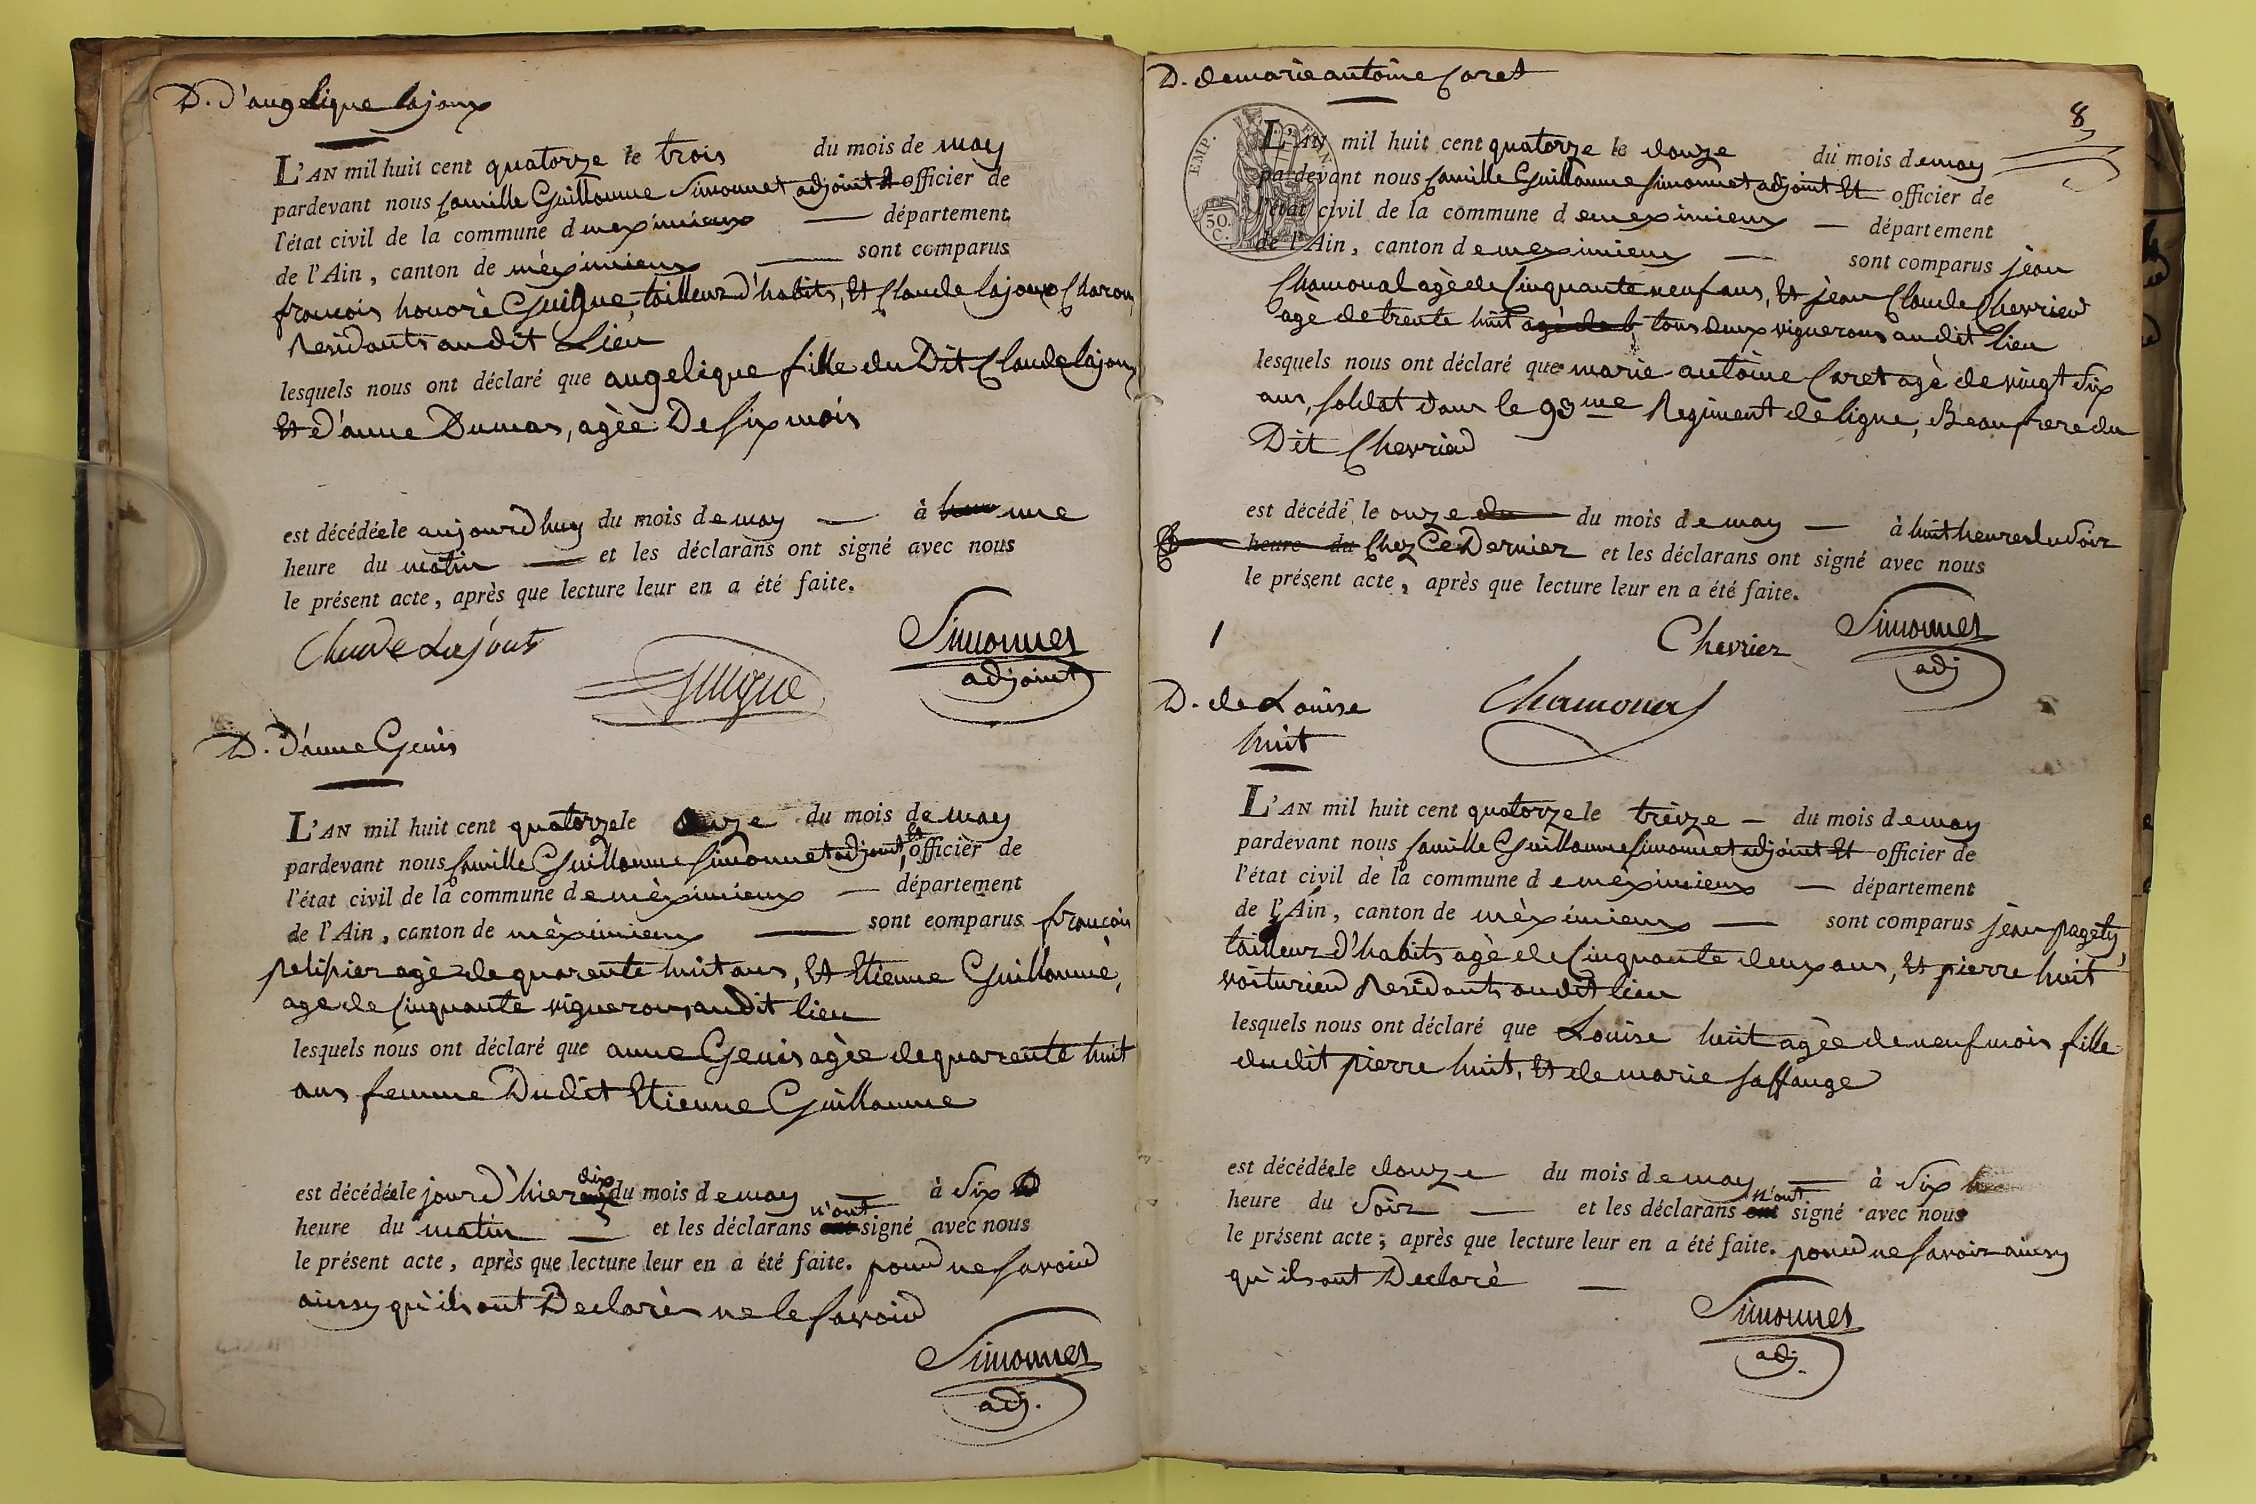 D. d'angelique lajoux
L'AN mil huit cent quatorze le trois du mois de may
pardevant nous Camille Guillaume Simonnet adjoint et officier de
l'état civil de la commune d emeximieux — département
de l'Ain, canton de mèximieux — sont comparus
francois honorè Guigue, tailleur d'habits, Et Claude lajoux Charon,
Residants audit Lieu
lesquels nous ont déclaré que angelique fille du Dit Claude lajoux
Et d'anne Dumas, agèe De Six mois
est décédée le aujourd huy du mois d e may — à une
heure du matin — et les déclarans ont signé avec nous
le présent acte, après que lecture leur en a été faite.
Claude Lajoux
Guigue
Simonnet
adjoint
D. d'anne Genis
L'AN mil huit cent quatorze le onze du mois de may
pardevant nous Camille Guillaume Simonnet adjoint, et officier de
l'état civil de la commune d e mèximieux — département
de l'Ain, canton de mèximieux — sont comparus francois
pelissier agè de quarente huit ans, Et Etienne Guillaume,
age de Cinquante vignerons audit lieu
lesquels nous ont déclaré que anne Genis agèe de quarente huit
ans femme Dudit Etienne Guillaume
est décédée le jour d'hier dix du mois d e may — à Six
heure du matin — et les déclarans n'ont signé avec nous
le présent acte, après que lecture leur en a été faite. pour ne Savoir
ainsy qu'ils ont Declarès ne le Savoir
Simonnet
adj.
D. de marie antoine Caret
8
EMP. FRAN.
50.
C.
L'AN mil huit cent quatorze le douze du mois d e may
pardevant nous Camille Guillaume Simonnet adjoint Et officier de
l'état civil de la commune d emeximieux — département
de l'Ain, canton d e meximieux — sont comparus jean
Chamoual agè de Cinquante neuf ans, Et jean Claude Chevrier
agè de trente huit agè de tous deux vignerons audit lieu
lesquels nous ont déclaré que marie antoine Caret agè de vingt Six
ans, Soldat dans le 93me Regiment de ligne, Beaufrere du
Dit Chevrier
est décédé le onze du du mois d e may — à huit heures du Soir
heure du Chez Ce Dernier et les déclarans ont signé avec nous
le présent acte, après que lecture leur en a été faite.
Chevrier
Simonnet
adj
Chamoual
D. de Louise
huit
L'AN mil huit cent quatorze le treize — du mois d e may
pardevant nous Camille Guillaume Simonnet adjoint Et officier de
l'état civil de la commune d e mèximieux — département
de l'Ain, canton de mèximieux — sont comparus jean pagety,
tailleur d'habits agè de Cinquante deux ans, Et pierre huit
voiturier Residants audit lieu
lesquels nous ont déclaré que Louise huit agèe de neuf mois fille
dudit pierre huit, Et de marie Saffange
est décédée le douze du mois d e may — à Six
heure du Soir — et les déclarans n'ont signé avec nous
le présent acte; après que lecture leur en a été faite. pour ne Savoir ainsy
qu'ils ont Declarè —
Simonnet
adj.